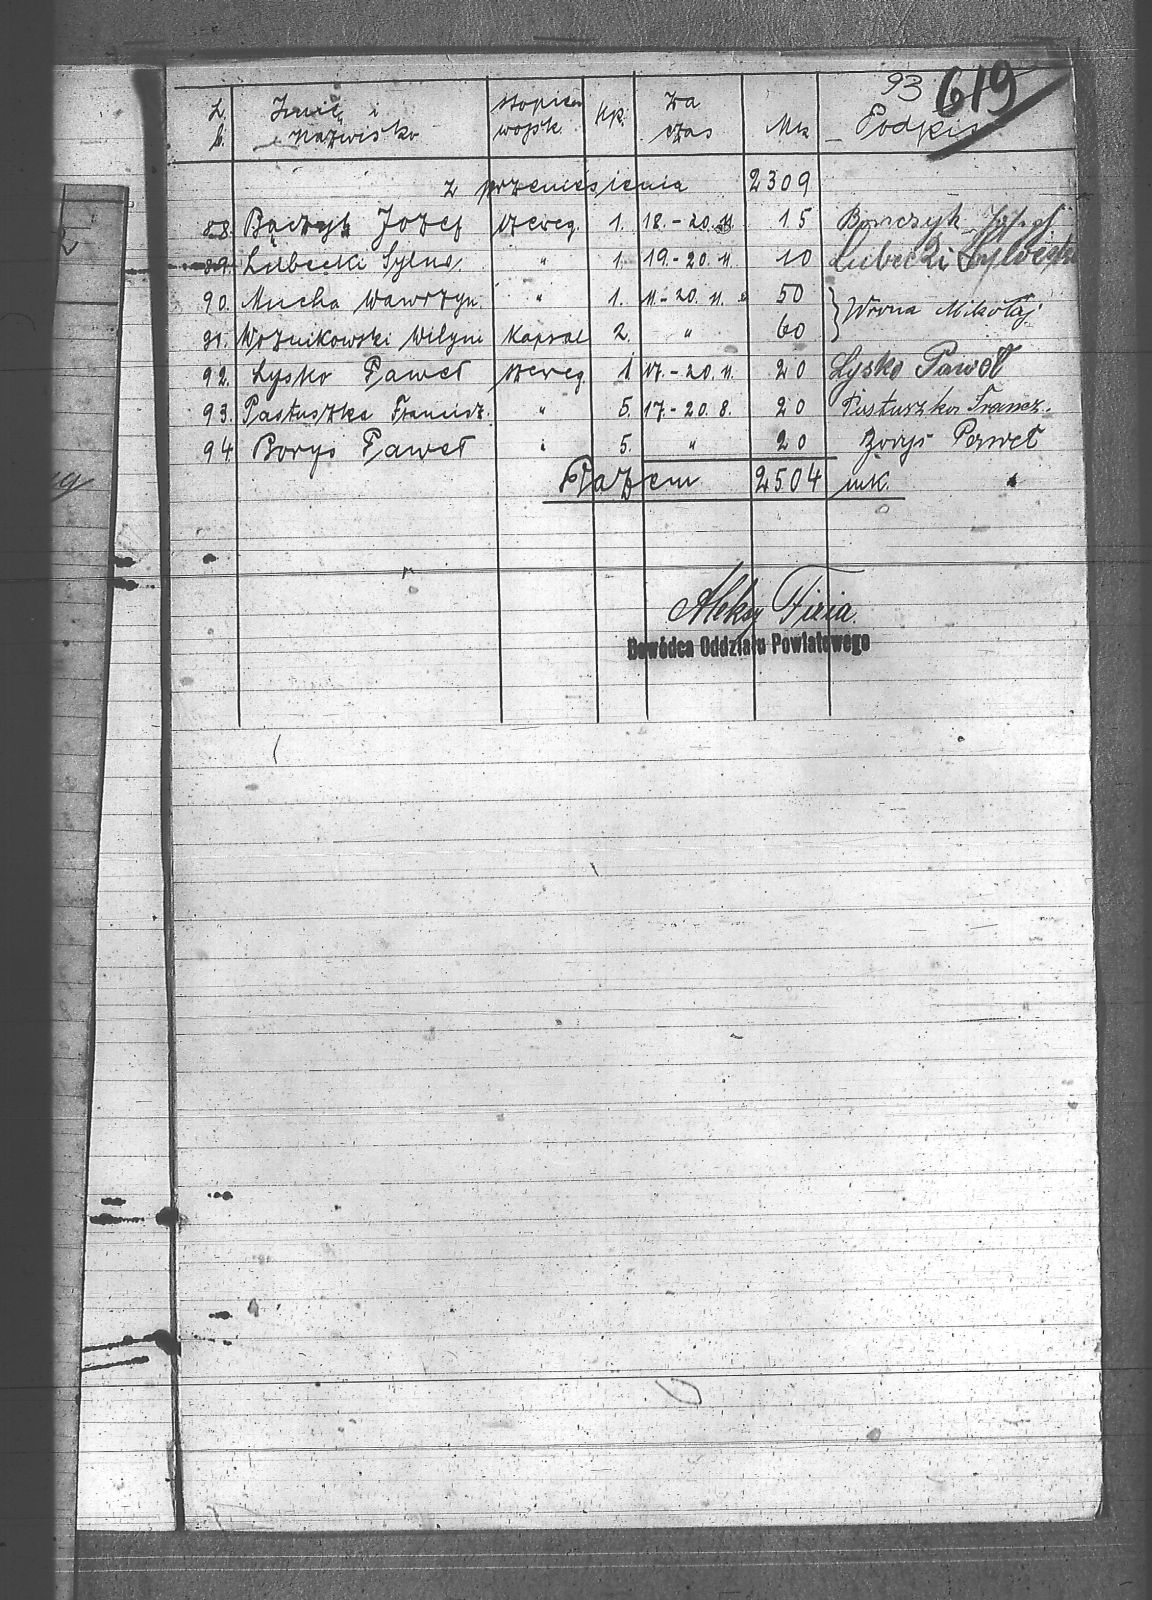 93 619
L. b. Imię i Nazwisko stopień wojsk. Kp. Za czas Mk Podpis
z przeniesienia 2309
88. Bączyk Józef szereg. 1. 18.-20.11. 15 Bonczyk Józef
89. Lubecki Sylwe. " 1. 19.-20.11. 10 Lubecki Sylwester
90. Mucha Wawrzyn. " 1. 11.-20.11. 50 } Wrona Mikołaj
91. Woznikowski Wilym Kapral 2. " 60
92. Lysko Paweł szereg. 1 17.-20.11. 20 Lysko Paweł
93. Pastuszka Francisz. " 5. 17.-20.8. 20 Pastuszka Francz.
94 Borys Paweł " 5. " 20 Borys Paweł
Razem 2504 mk.
Aleksy Firia.
Dowódca Oddziału Powiatowego